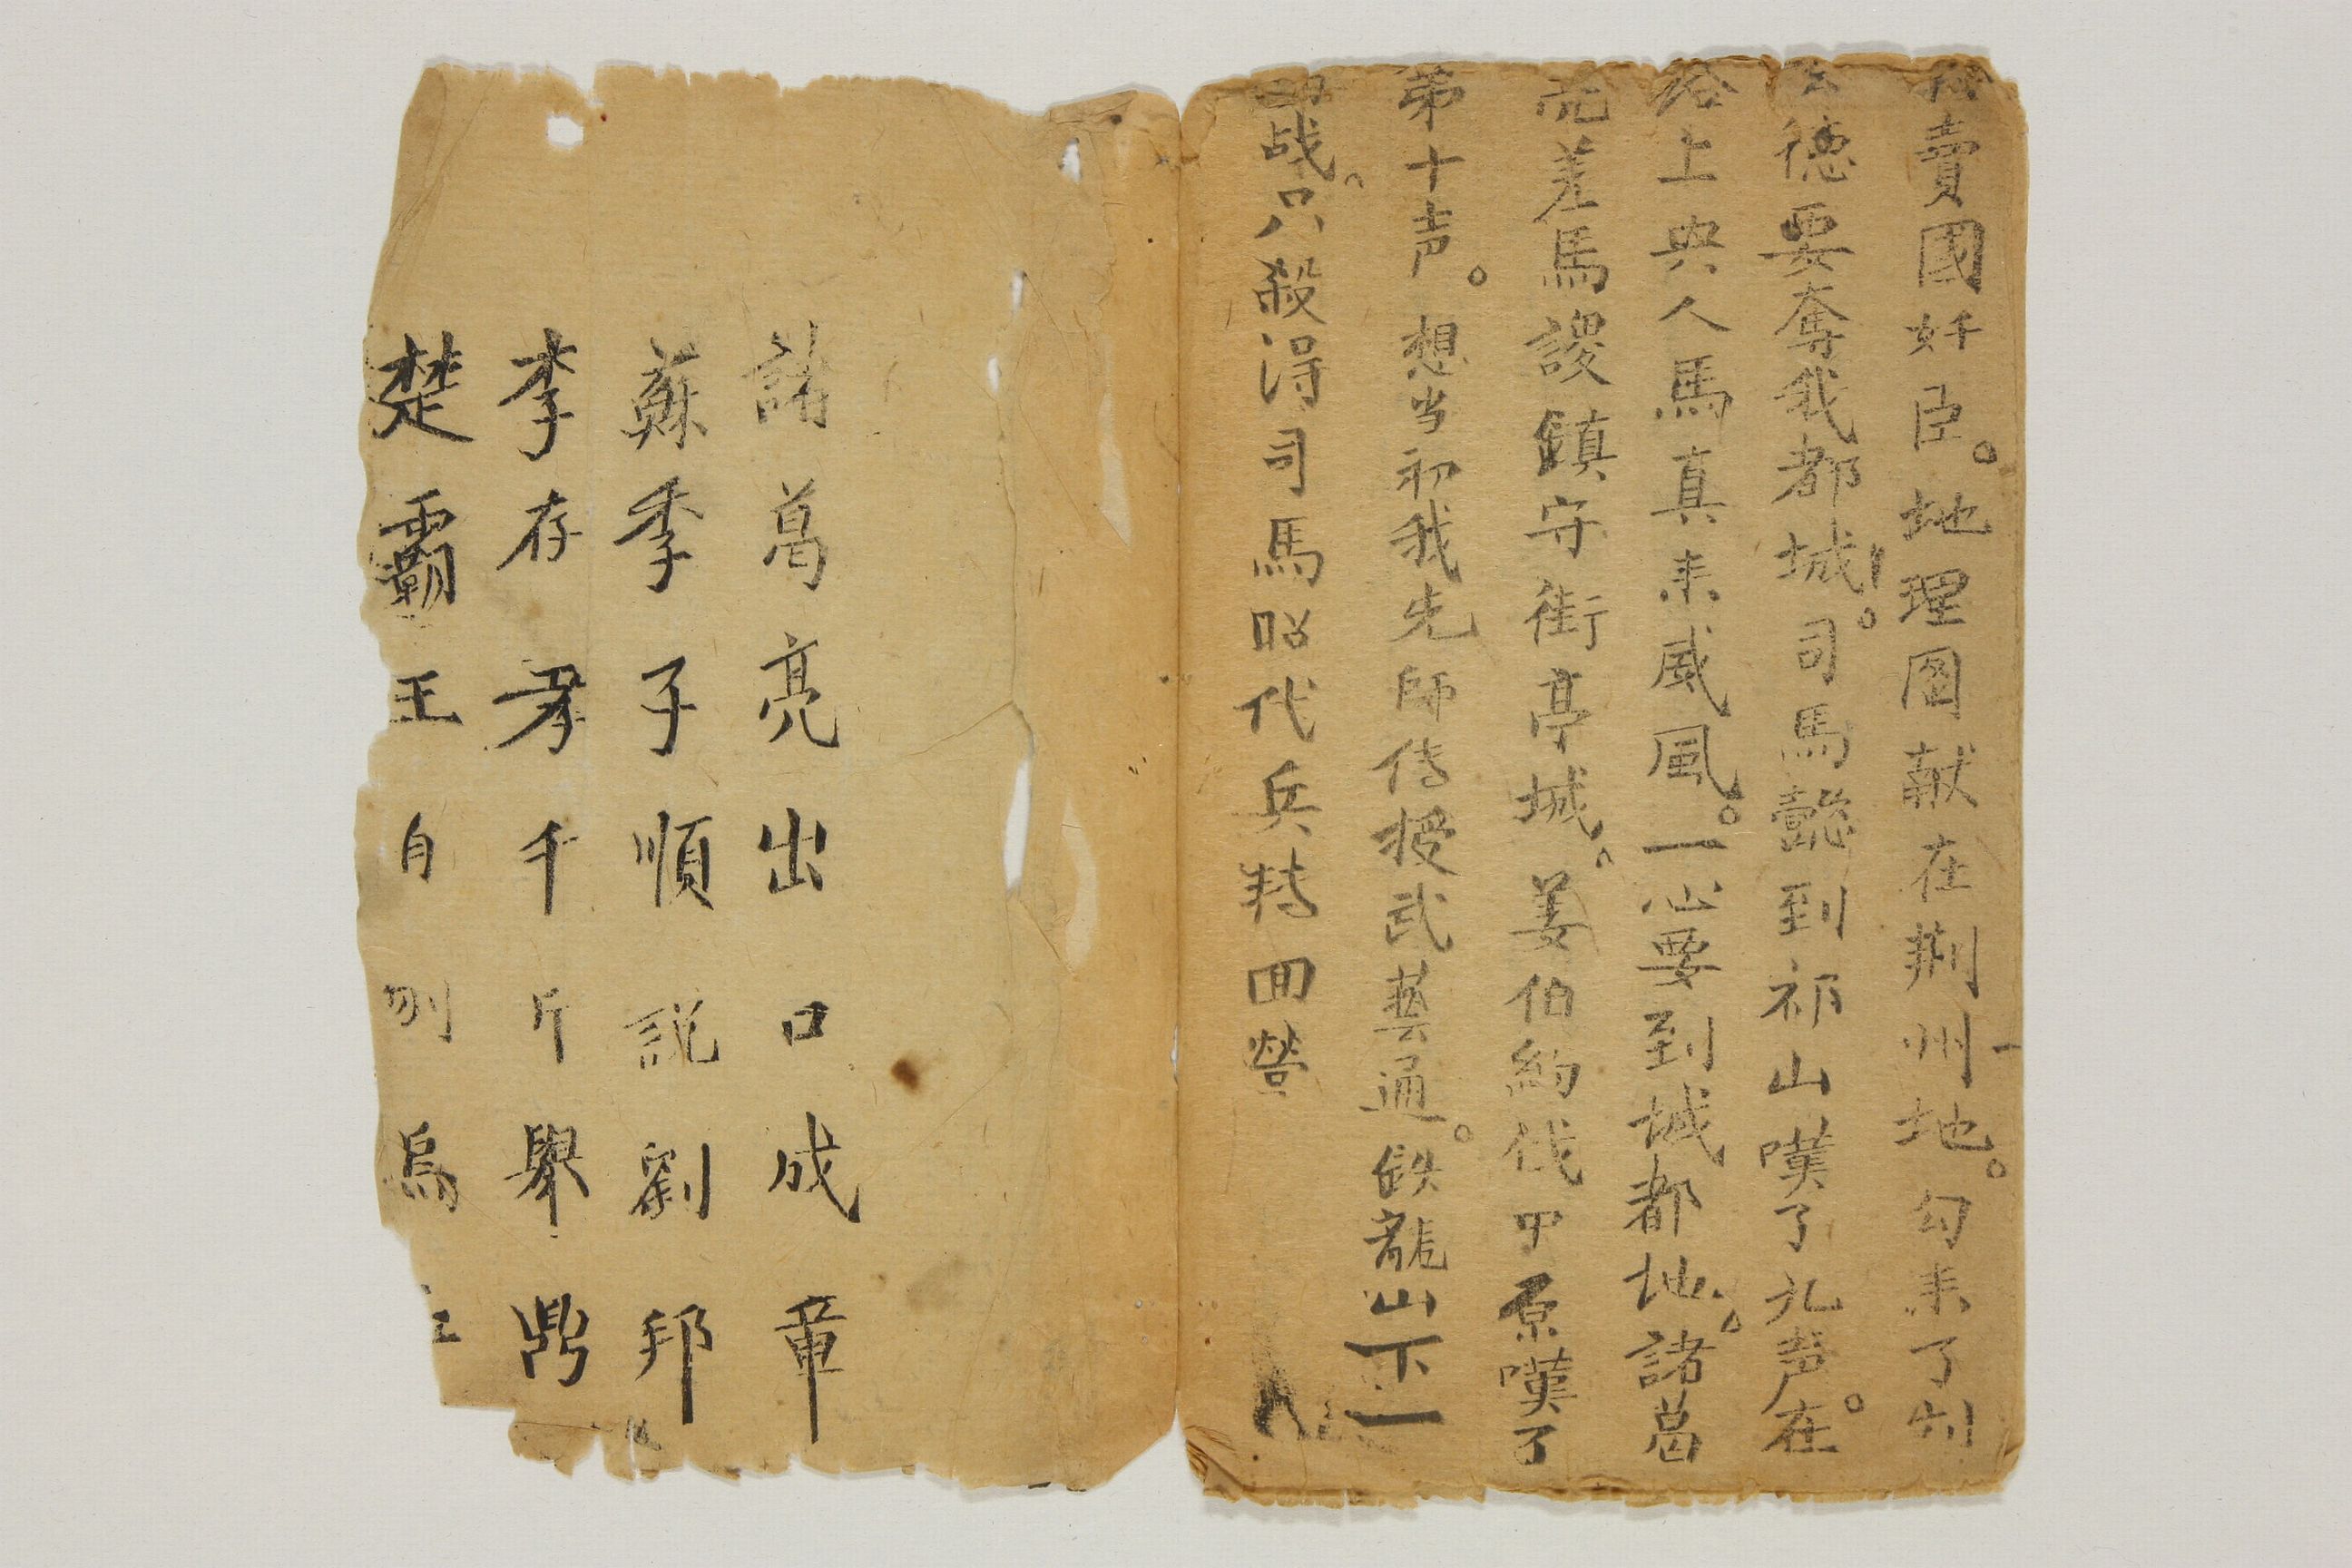 賣國奸臣。地理图献在荆州地。勾来了刘
德要奪我都城。司馬懿到祁山嘆了九声。在
上央人馬真来威風。一心要到城都地。諸葛
亮差馬謖鎮守街亭城。姜伯約伐中原嘆了
第十声。想当初我先師传授武藝通。鉄龍山下一
战。只殺得司馬昭代兵转囬營
諸葛亮出口成章
蘇季子順説劉邦
李存孝千斤舉鼎
楚霸王自刎烏江